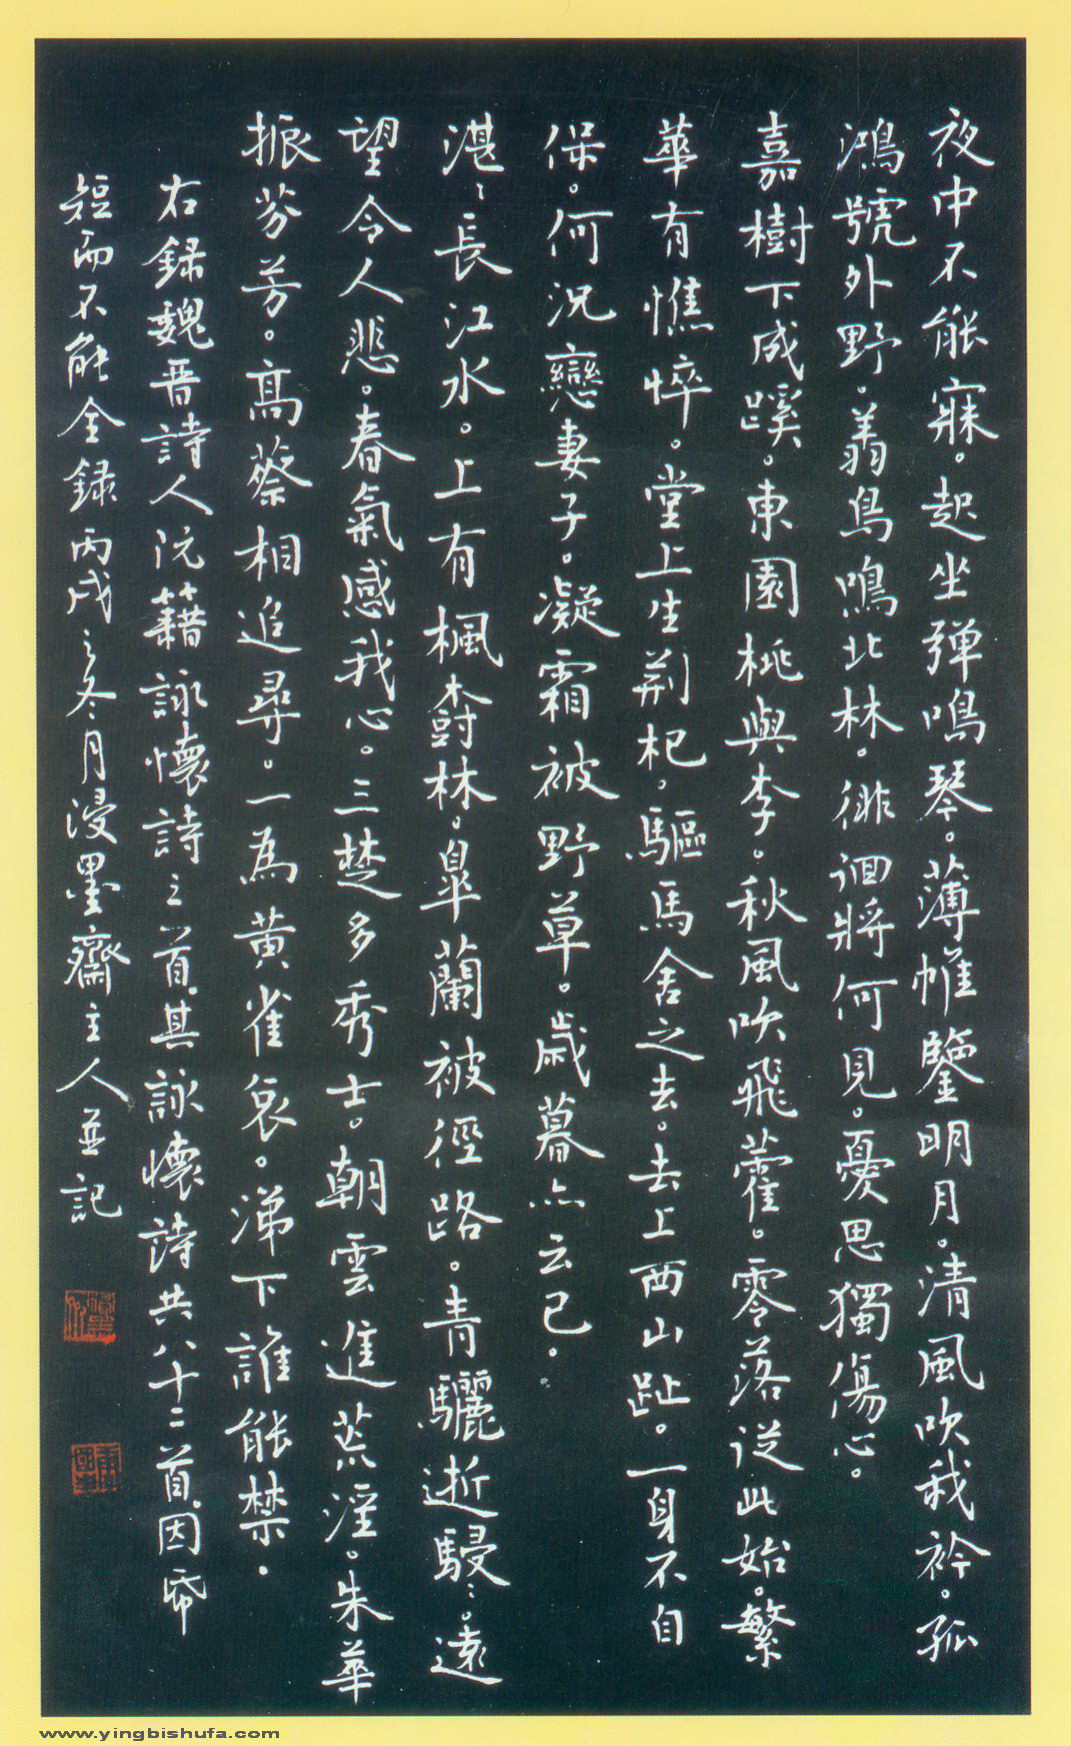 夜中不能寐。起坐弹鳴琴。薄帷鑒明月。清風吹我衿。孤
鴻號外野。翔鳥鳴北林。徘徊將何見。憂思獨傷心。
嘉樹下成蹊。東園桃與李。秋風吹飛藿。零落從此始。繁
華有憔悴。堂上生荆杞。驅馬舍之去。去上西山趾。一身不自
保。何况戀妻子。凝霜被野草。歲暮亦云已。
湛〻長江水。上有楓樹林。皋蘭被徑路。青驪逝駸〻。遠
望令人悲。春氣感我心。三楚多秀士。朝雲進荒淫。朱華
振芬芳。高蔡相追尋。一為黃雀哀。涕下誰能禁。
右録魏晋詩人阮籍詠懷詩之首。其詠懷詩共八十二首。因帋
短而不能全録丙戌之冬月浸墨齋主人並記
www.yingbishufa.com